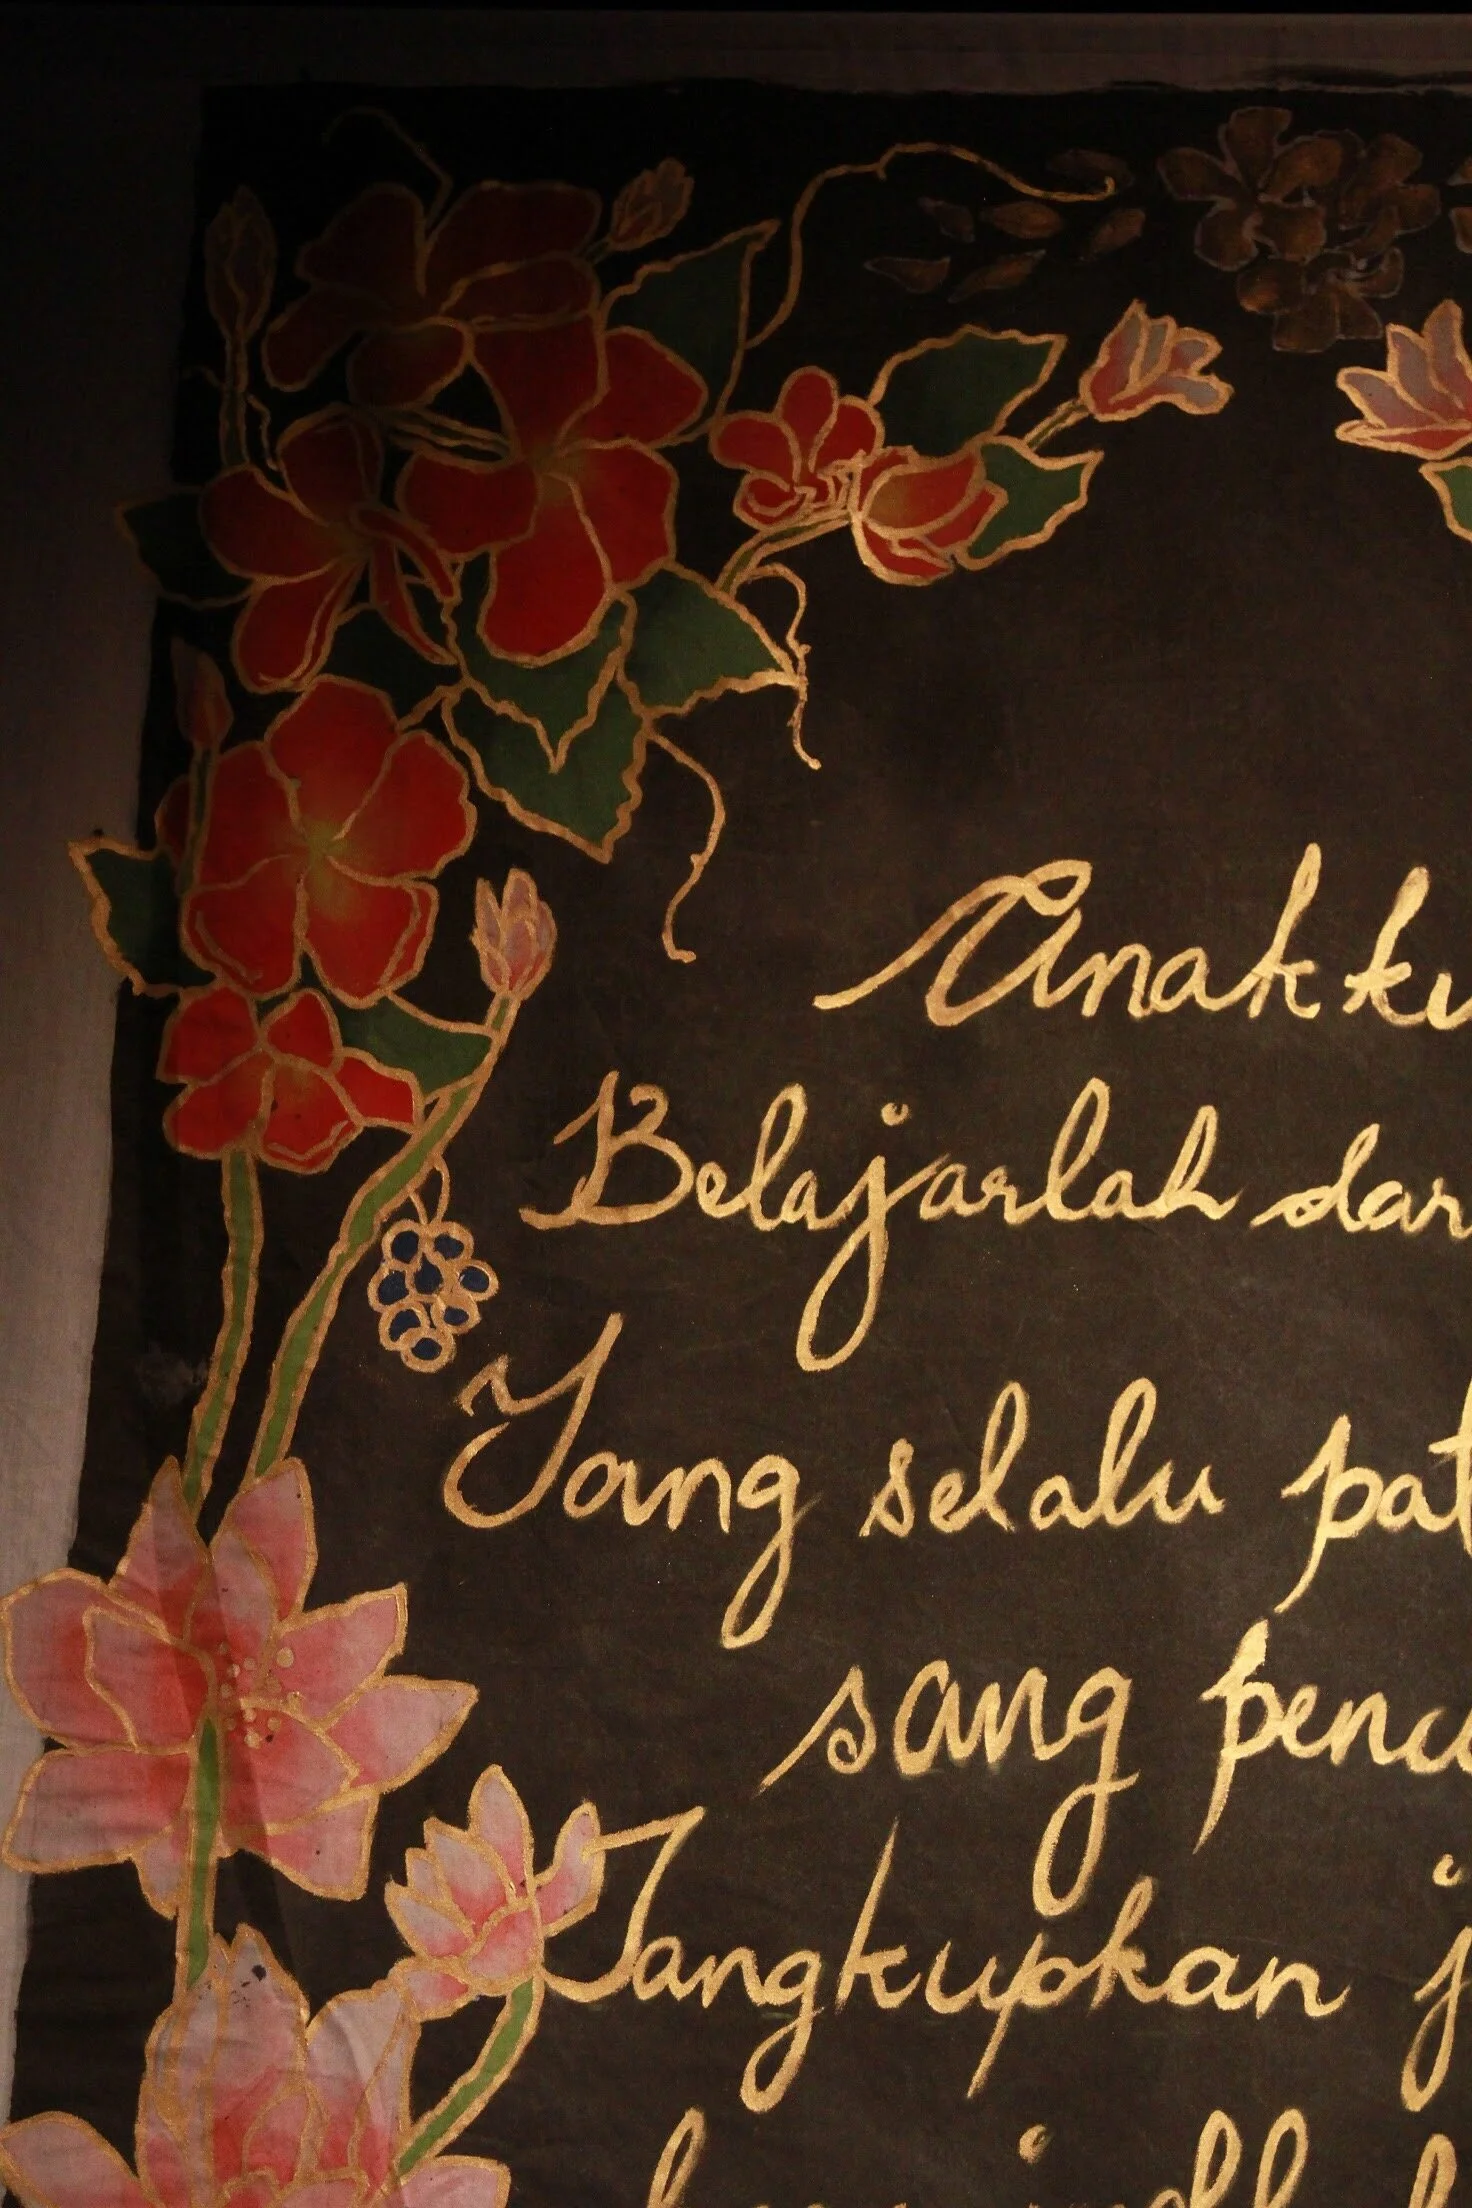 Anakku
Belajarlah dar
Yang selalu pat
sang penc
Tangkupkan j